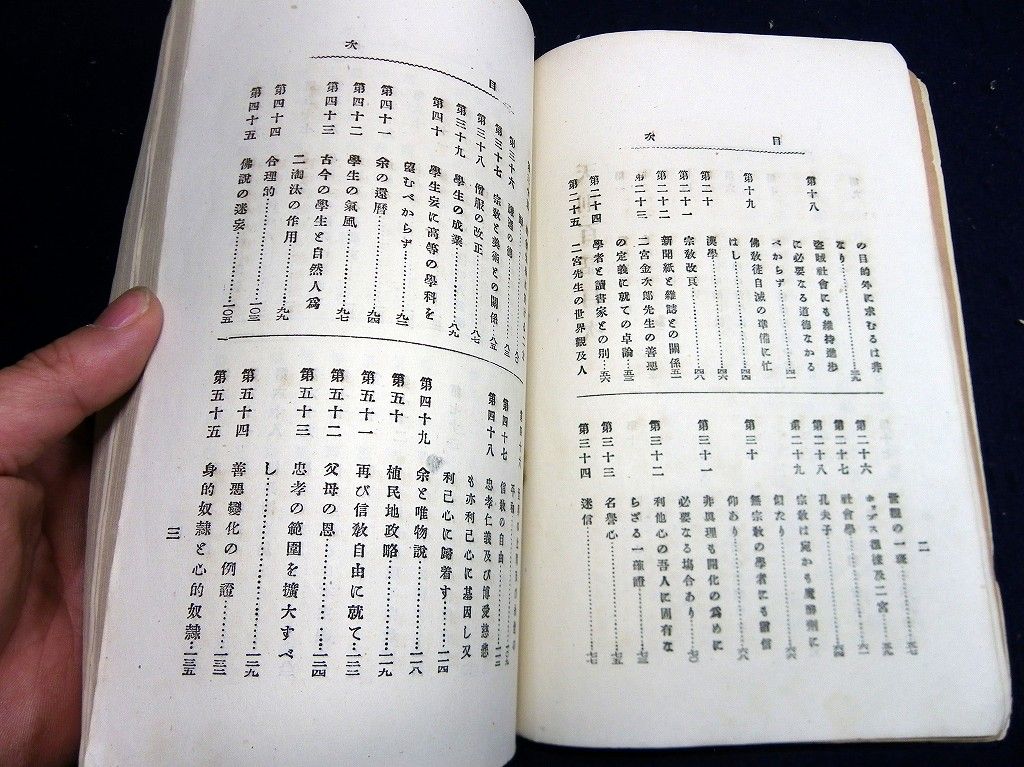 目次
の目的外に求むるは非
なり……三九
第十八
盜賊社會にも維持進歩
に必要なる道德なかる
べからず……四一
第十九
佛敎徒自滅の準備に忙
はし……四四
第二十
漢學……四六
第二十一
宗敎改良……四八
第二十二
新聞紙と雜誌との關係 五一
第二十三
二宮金次郎先生の善惡
の定義に就ての卓論……五三
第二十四
學者と讀書家との別……五六
第二十五
二宮先生の世界觀及人
世觀の一班……五七
第二十六
及二宮……五九
第二十七
社會學……六一
第二十八
孔夫子……六四
第二十九
宗敎は宛かも魔醉劑に
似たり……六六
第三十
無宗敎の學者にも信
仰あり……六八
第三十一
非眞理も開化の爲めに
必要なる場合あり……七〇
第三十二
利他心の吾人に固有な
らざる一確證……七三
第三十三
名譽心……七五
第三十四
迷信……七七
二
目次
第三十六
第三十七
宗敎と美術との關係……八五
第三十八
僧服の改正……八七
第三十九
學生の成業……八九
第四十
學生妄に高等の學科を
望むべからず……九二
第四十一
余の還曆……九四
第四十二
學生の氣風……九七
第四十三
古今の學生と自然人爲
二淘汰の作用……九九
第四十四
合理的……一〇三
第四十五
佛說の迷妄……一〇五
第四十七
信敎の自由
第四十八
忠孝仁義及び博愛慈悲
も亦利己心に基因し又
利己心に歸着す……一一四
第四十九
余と唯物說……一一六
第五十
植民地政略……一一九
第五十一
再び信敎自由に就て……一二二
第五十二
父母の恩……一二四
第五十三
忠孝の範圍を擴大すべ
し……一二九
第五十四
善惡變化の例證……一三二
第五十五
身的奴隷と心的奴隷……一三五
三